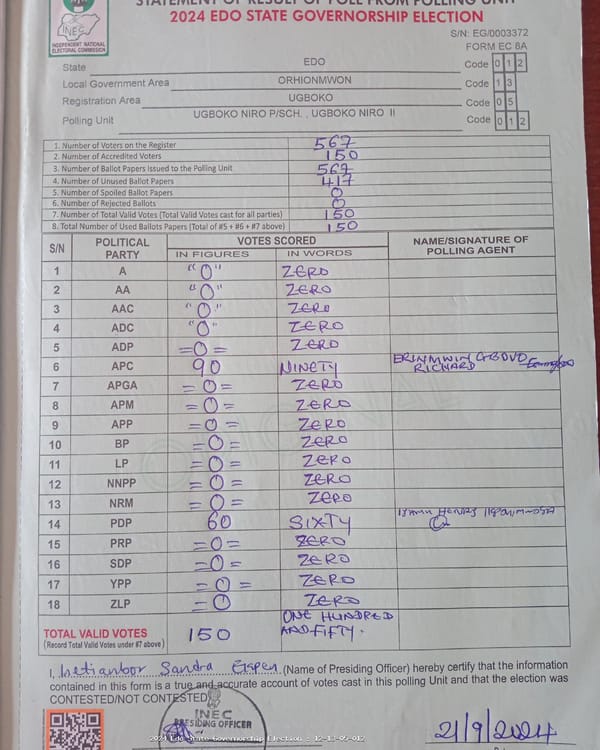 STATEMENT OF RESULT OF POLL FROM POLLING UNIT
2024 EDO STATE GOVERNORSHIP ELECTION
INEC
INDEPENDENT NATIONAL
ELECTORAL COMMISSION
S/N: EG/0003372
FORM EC 8A
State EDO Code 0 1 2
Local Government Area ORHIONMWON Code 1 3
Registration Area UGBOKO Code 0 5
Polling Unit UGBOKO NIRO P/SCH. , UGBOKO NIRO II Code 0 1 2
1. Number of Voters on the Register 567
2. Number of Accredited Voters 150
3. Number of Ballot Papers Issued to the Polling Unit 567
4. Number of Unused Ballot Papers 417
5. Number of Spoiled Ballot Papers 0
6. Number of Rejected Ballots 0
7. Number of Total Valid Votes (Total Valid Votes cast for all parties) 150
8. Total Number of Used Ballots Papers (Total of #5 + #6 + #7 above) 150
S/N POLITICAL PARTY VOTES SCORED NAME/SIGNATURE OF POLLING AGENT
IN FIGURES IN WORDS
1 A "0" ZERO
2 AA "0" ZERO
3 AAC "0" ZERO
4 ADC "0" ZERO
5 ADP =0= ZERO
6 APC 90 NINETY RICHARD
7 APGA =0= ZERO
8 APM =0= ZERO
9 APP =0= ZERO
10 BP =0= ZERO
11 LP =0= ZERO
12 NNPP =0= ZERO
13 NRM =0= ZERO
14 PDP 60 SIXTY
15 PRP =0= ZERO
16 SDP =0= ZERO
17 YPP =0= ZERO
18 ZLP =0 ZERO
TOTAL VALID VOTES 150 ONE HUNDRED
(Record Total Valid Votes under #7 above) AND FIFTY.
I, Sandra (Name of Presiding Officer) hereby certify that the information
contained in this form is a true and accurate account of votes cast in this polling Unit and that the election was
CONTESTED/NOT CONTESTED
INEC
PRESIDING OFFICER
21/9/2024
2024 Edo State Governorship Election : 12-13-05-012